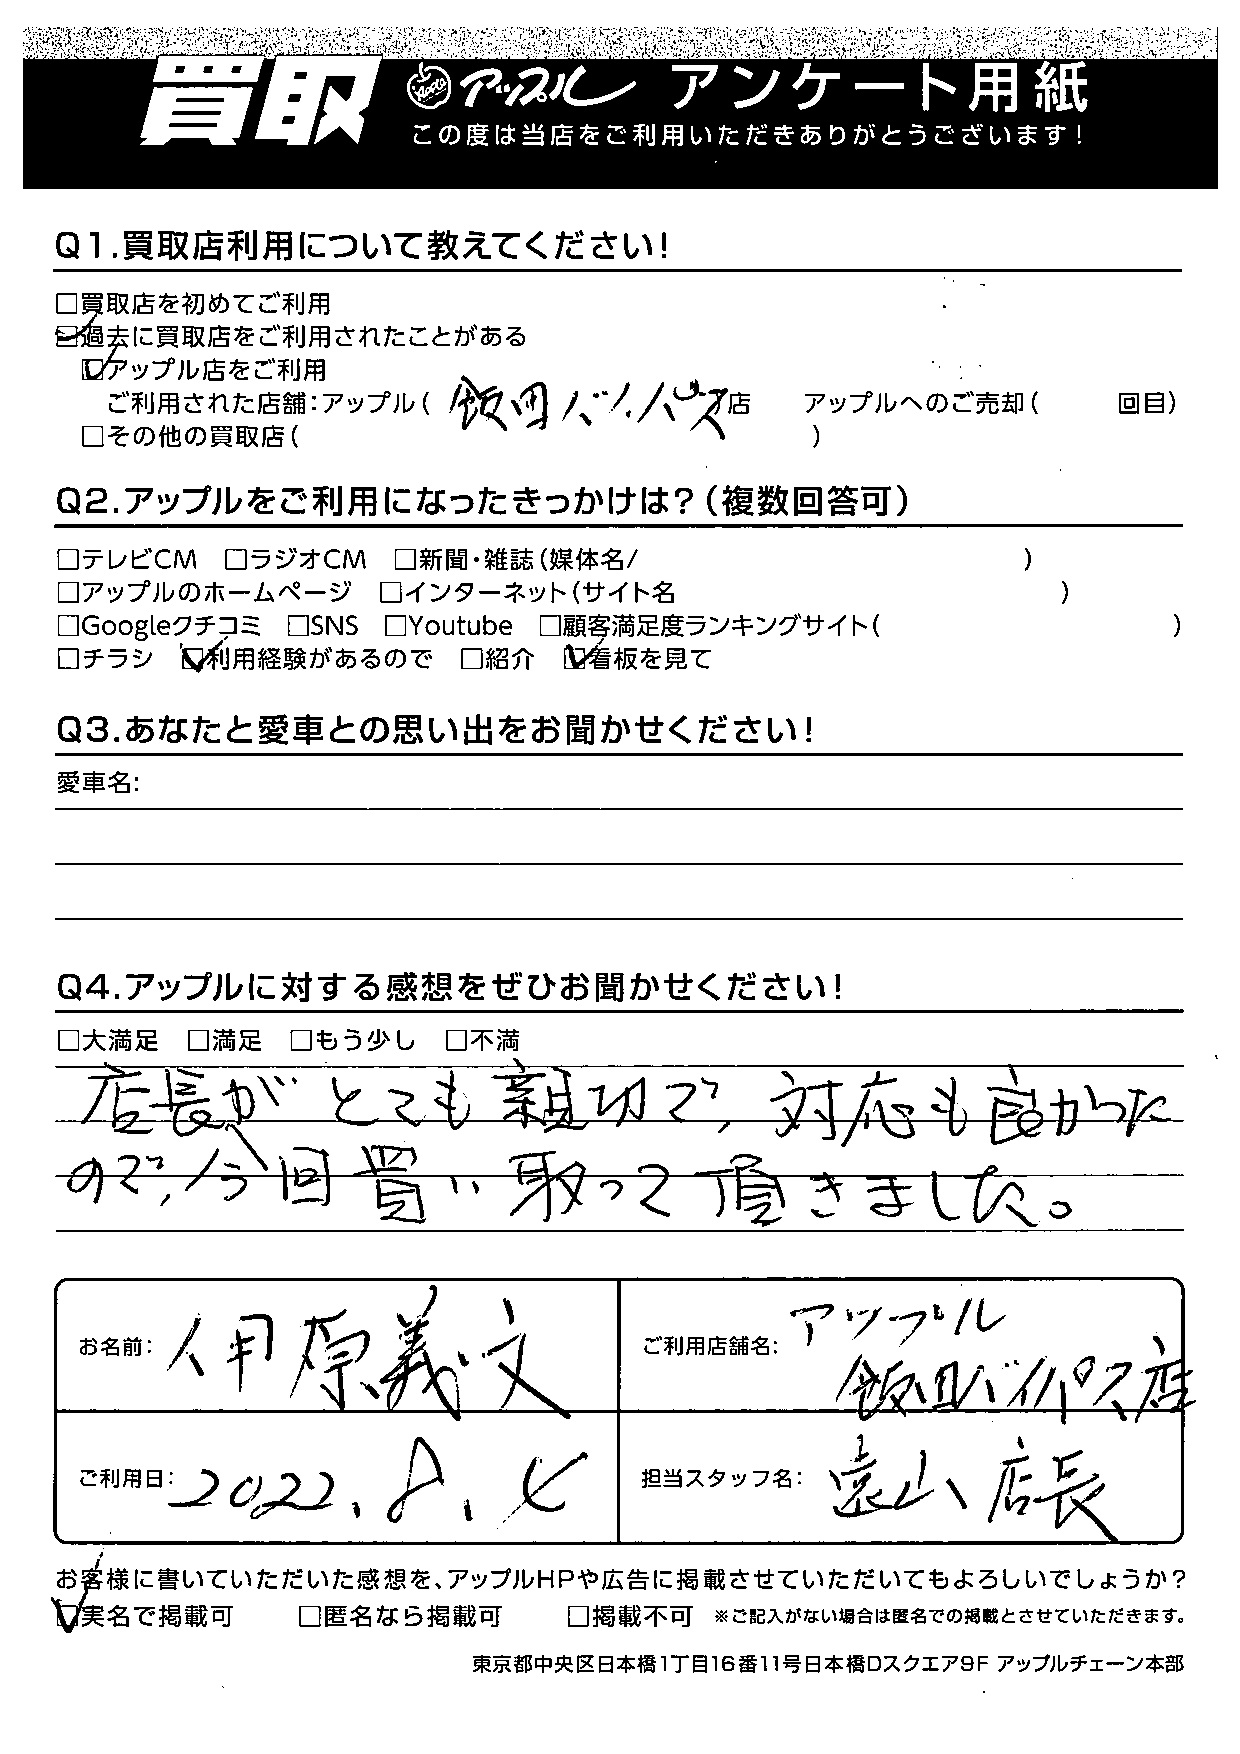 買取 アップル アンケート用紙
この度は当店をご利用いただきありがとうございます!
Q1.買取店利用について教えてください!
□買取店を初めてご利用
☑過去に買取店をご利用されたことがある
☑アップル店をご利用
ご利用された店舗:アップル(飯田バイパス店 アップルへのご売却( 回目)
□その他の買取店( )
Q2.アップルをご利用になったきっかけは?(複数回答可)
□テレビCM □ラジオCM □新聞・雑誌(媒体名/ )
□アップルのホームページ □インターネット(サイト名 )
□Googleクチコミ □SNS □Youtube □顧客満足度ランキングサイト( )
□チラシ ☑利用経験があるので □紹介 ☑看板を見て
Q3.あなたと愛車との思い出をお聞かせください!
愛車名:
Q4.アップルに対する感想をぜひお聞かせください!
□大満足 □満足 □もう少し □不満
店長がとても親切で、対応も良かった
ので、今回買い取って頂きました。
お名前: 伊原義文 ご利用店舗名: アップル
飯田バイパス店
ご利用日: 2022.8.4 担当スタッフ名: 遠山店長
お客様に書いていただいた感想を、アップルHPや広告に掲載させていただいてもよろしいでしょうか?
☑実名で掲載可 □匿名なら掲載可 □掲載不可 ※ご記入がない場合は匿名での掲載とさせていただきます。
東京都中央区日本橋1丁目16番11号日本橋Dスクエア9F アップルチェーン本部